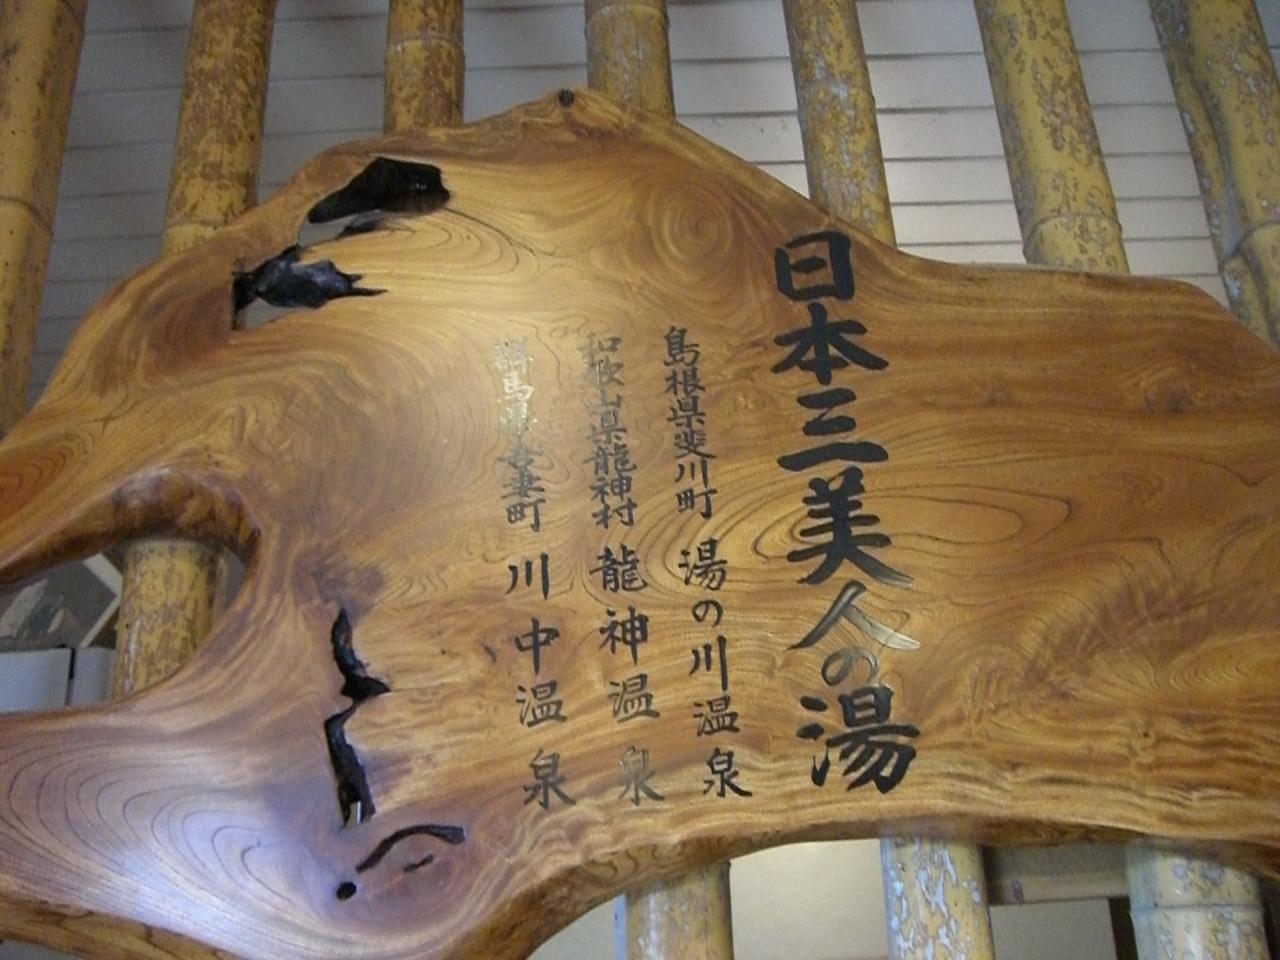 日本三美人の湯
島根県斐川町 湯の川温泉
和歌山県龍神村 龍神温泉
群馬県吾妻町 川中温泉